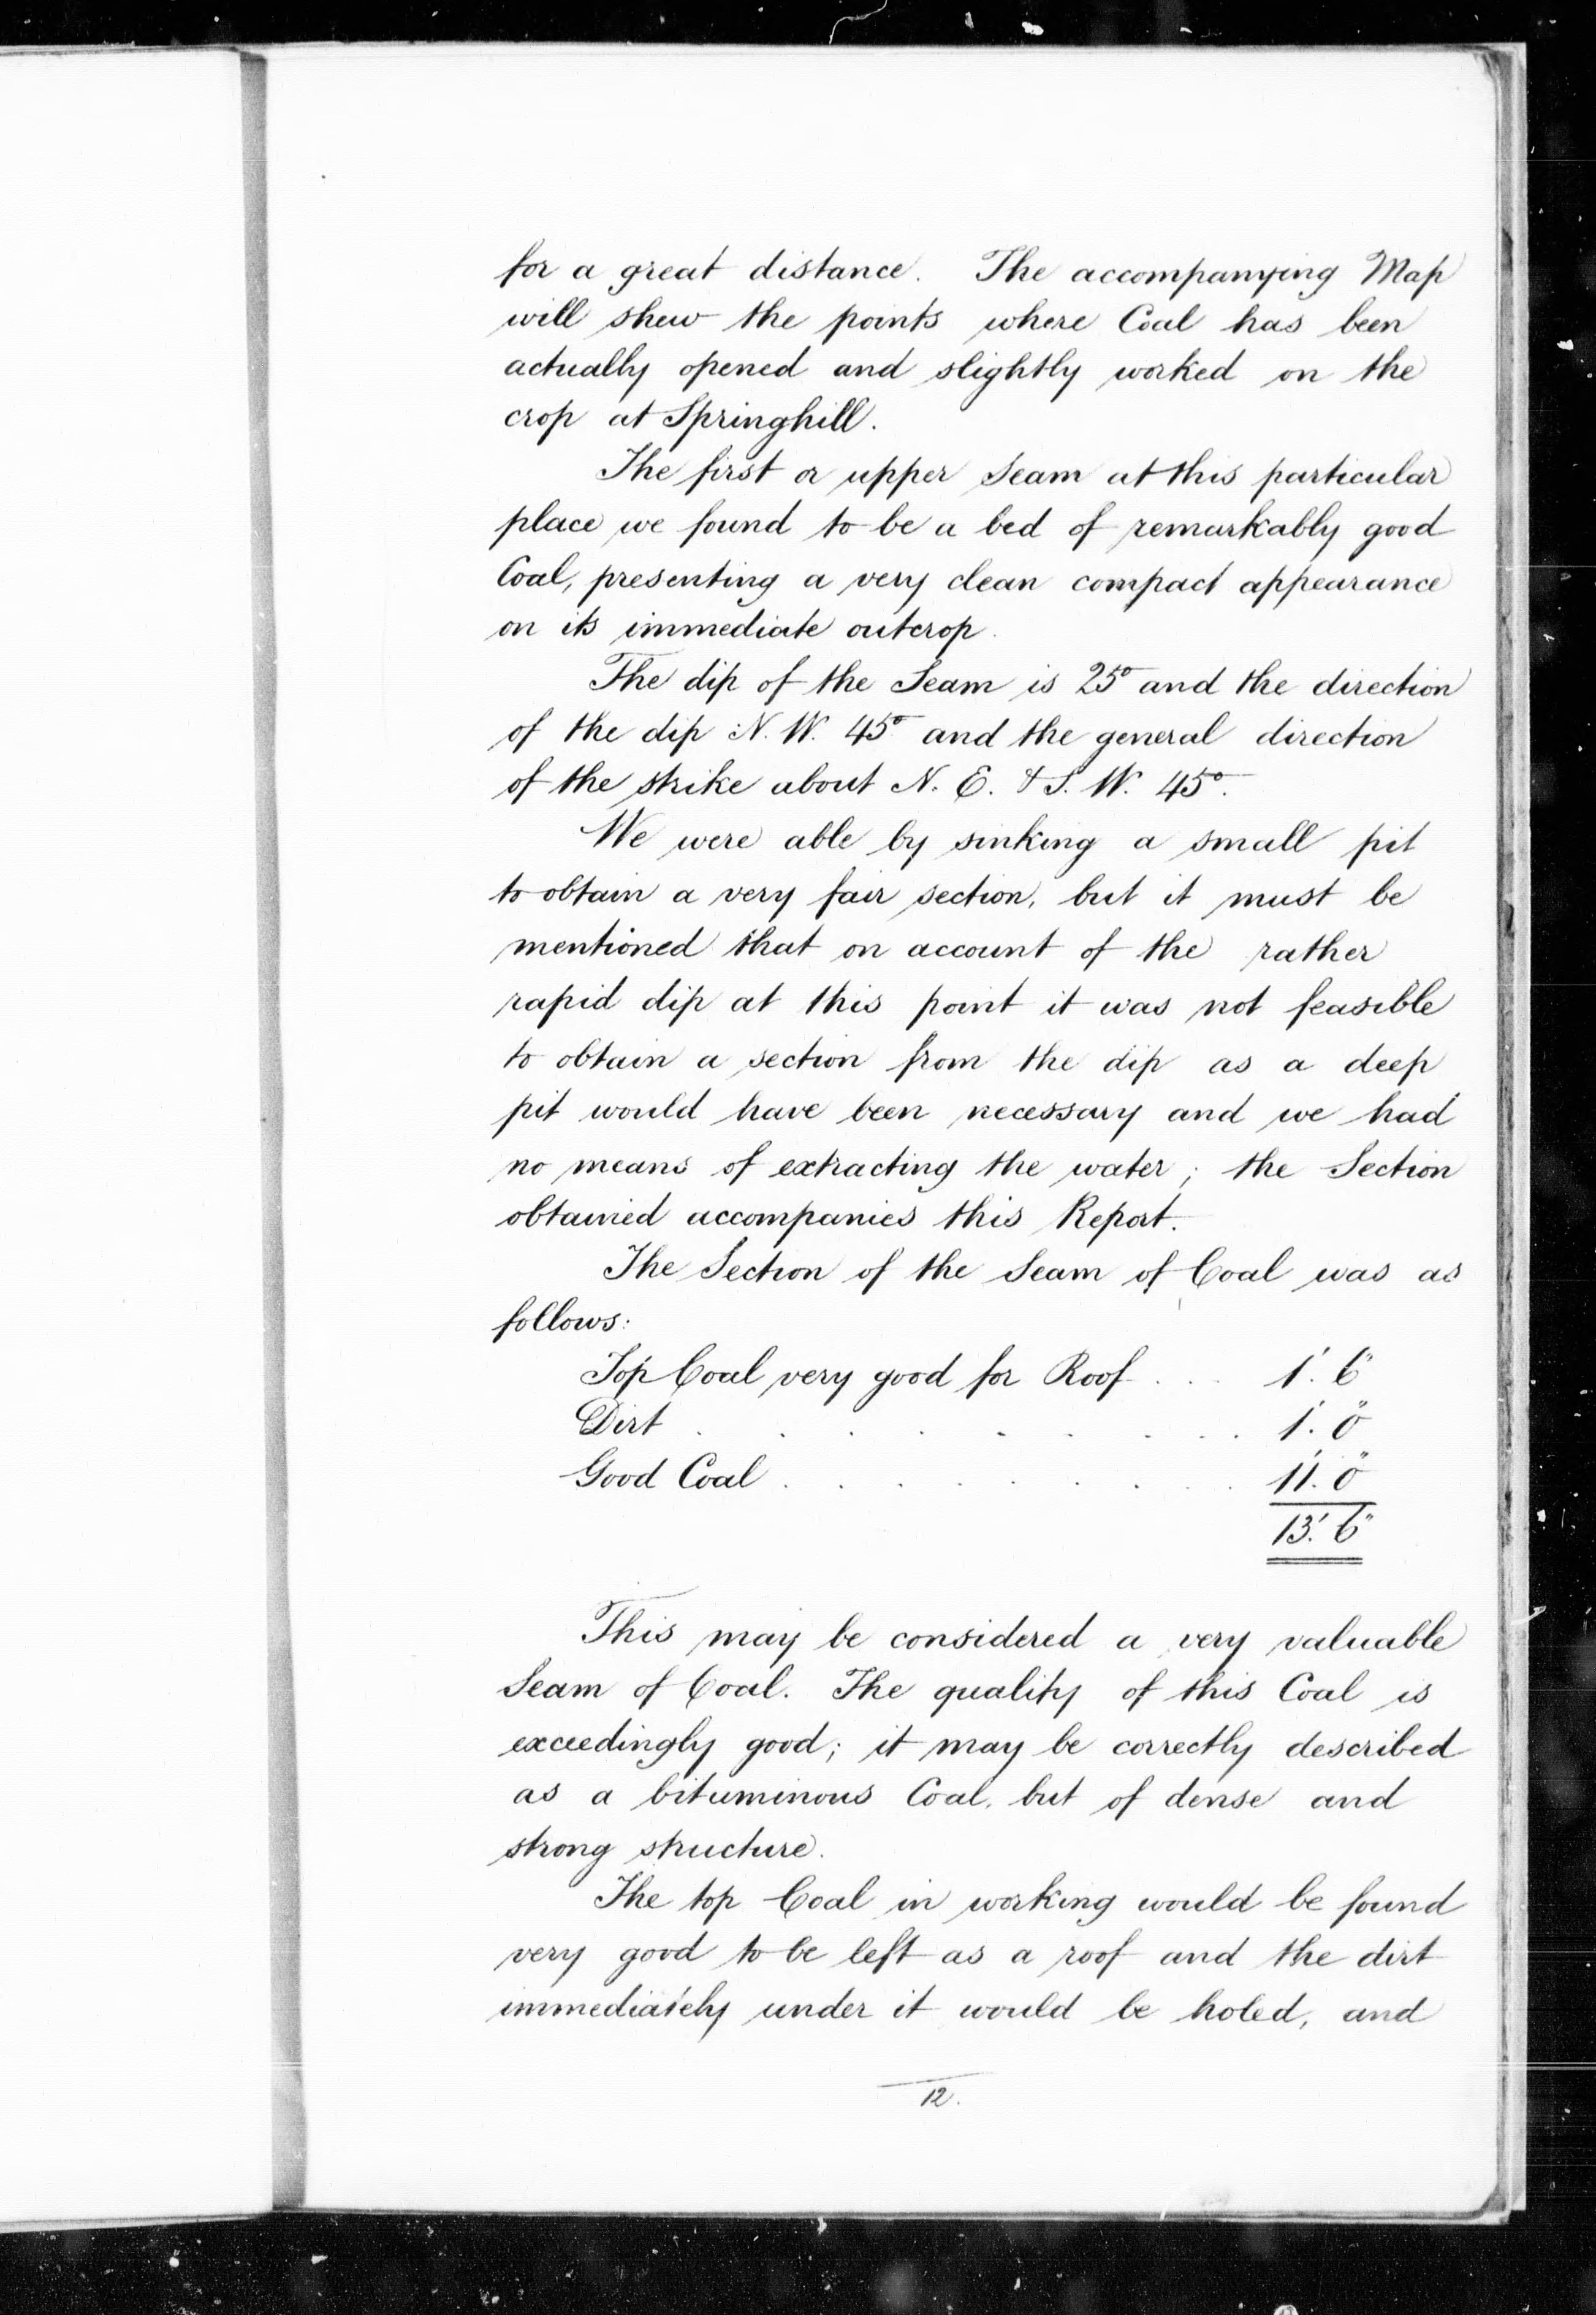 for a great distance. The accompanying Map
will shew the points where Coal has been
actually opened and slightly worked on the
crop at Springhill.
The first or upper Seam at this particular
place we found to be a bed of remarkably good
Coal, presenting a very clean compact appearance
on its immediate outcrop.
The dip of the Seam is 25° and the direction
of the dip N. W. 45° and the general direction
of the strike about N. E. & S. W. 45°.
We were able by sinking a small pit
to obtain a very fair section, but it must be
mentioned that on account of the rather
rapid dip at this point it was not feasible
to obtain a section from the dip as a deep
pit would have been necessary and we had
no means of extracting the water; the Section
obtained accompanies this Report.
The Section of the Seam of Coal was as
follows:
Top Coal very good for Roof . . . 1'. 6"
Dirt . . . . . . . . . 1'. 0"
Good Coal . . . . . . . . 11'. 0"
13'. 6"
This may be considered a very valuable
Seam of Coal. The quality of this Coal is
exceedingly good; it may be correctly described
as a bituminous Coal, but of dense and
strong structure.
The top Coal in working would be found
very good to be left as a roof and the dirt
immediately under it would be holed, and
12.